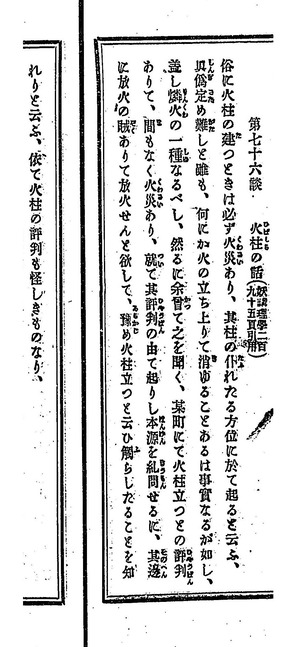 第七十六談　火柱の話（妖怪理學二百九十五頁引用）
俗に火柱の建つときは必ず火災あり、其柱の仆れたる方位に於て起ると云ふ、
眞僞定め難しと雖も、何にか火の立ち上りて消ゆることあるは事實なるが如し、
蓋し燐火の一種なるべし、然るに余曾て之を聞く、某町にて火柱立つとの評判
ありて、間もなく火災あり、就て其評判の由て起りし本源を糺問せるに、其邊
に放火の賊ありて放火せんと欲して、豫め火柱立つと云ひ觸らしたることを知
れりと云ふ、依て火柱の評判も怪しきものなり、